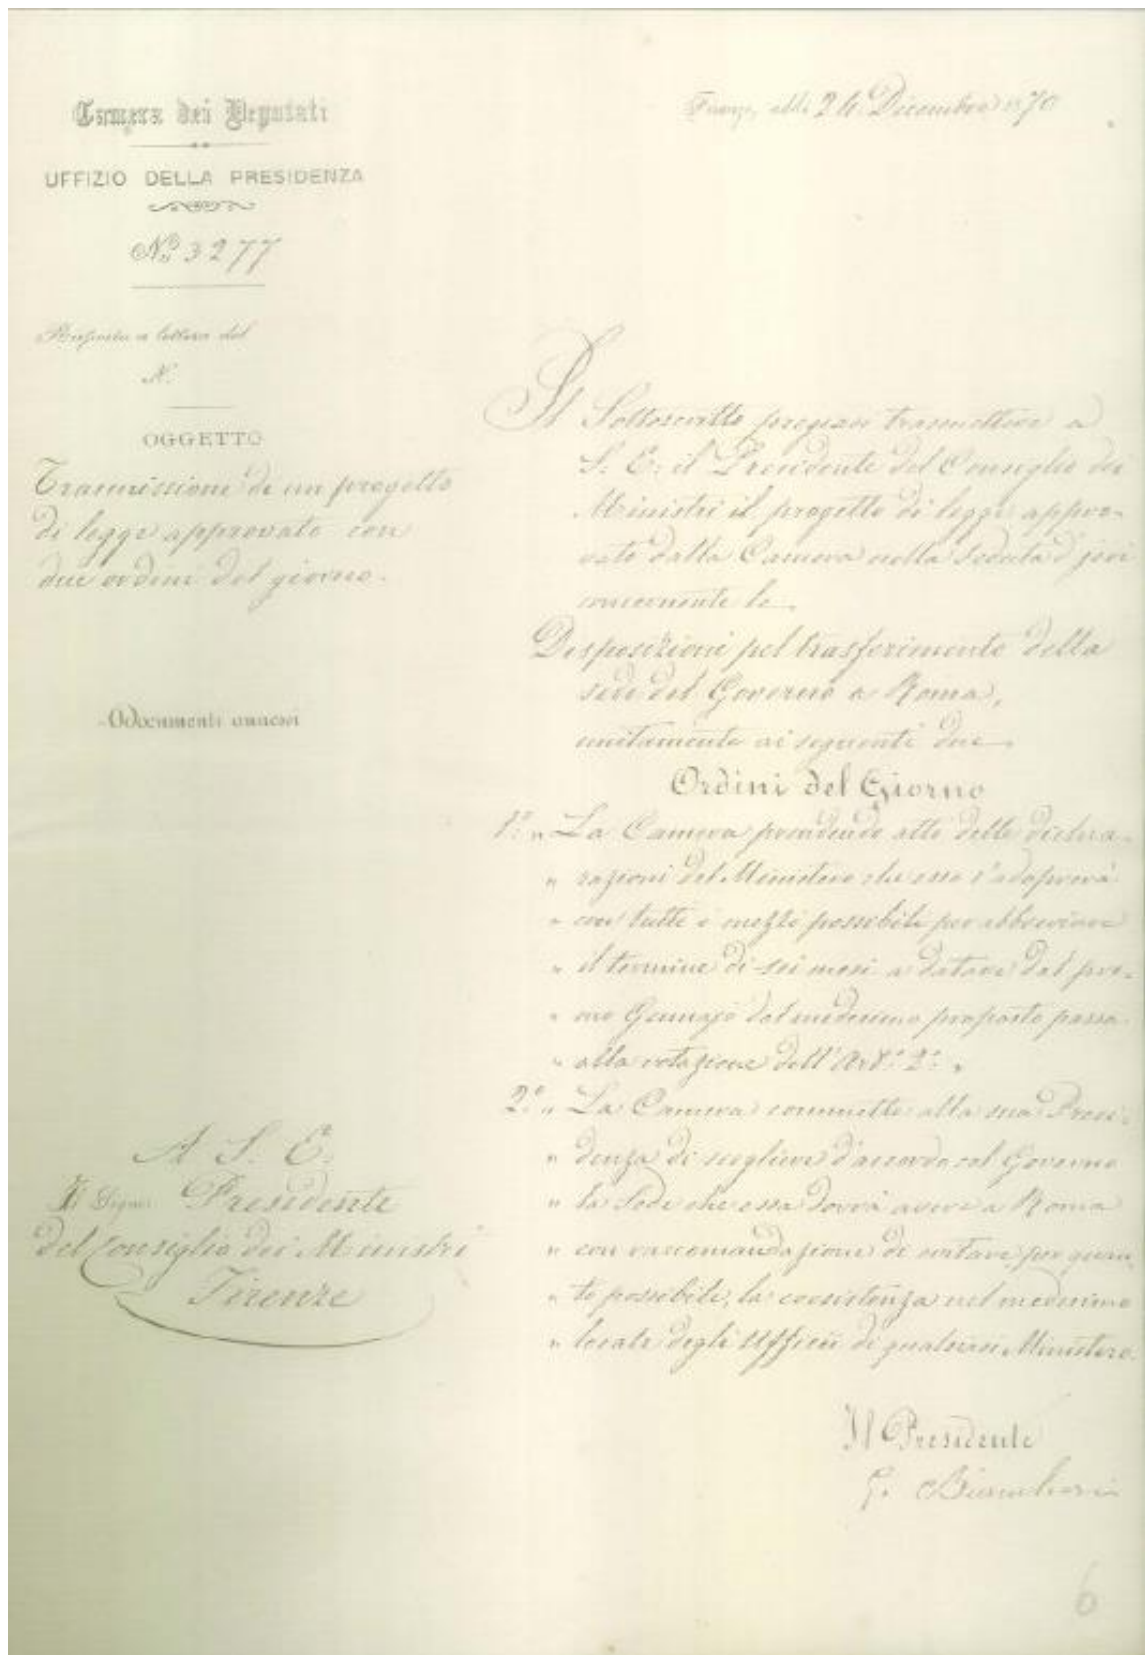 Camera dei Deputati
UFFIZIO DELLA PRESIDENZA
No 3277
Risposta a lettera del
N.
OGGETTO
Trasmissione di un progetto
di legge approvato con
due ordini del giorno.
Documenti annessi
A S. E.
Il Signor Presidente
del Consiglio dei Ministri
Firenze
Firenze, addì 24 Dicembre 1870
Il Sottoscritto pregiasi trasmettere a
S. E. il Presidente del Consiglio dei
Ministri il progetto di legge appro-
vato dalla Camera nella seduta d'jeri
concernente le
Disposizioni pel trasferimento della
sede del Governo a Roma,
unitamente ai seguenti due
Ordini del Giorno
1.° " La Camera prendendo atto delle dichia-
" razioni del Ministero che esso s'adoprerà
" con tutti i mezzi possibili per abbreviare
" il termine di sei mesi a datare dal pri-
" mo Gennajo dal medesimo proposto passa
" alla votazione dell'Art.° 2.° "
2.° " La Camera commette alla sua Presi-
" denza di scegliere d'accordo col Governo
" la Sede che essa dovrà avere a Roma
" con raccomandazione di evitare, per quan-
" to possibile, la coesistenza nel medesimo
" locale degli Ufficii di qualsiasi Ministero.
Il Presidente
G. Biancheri
6